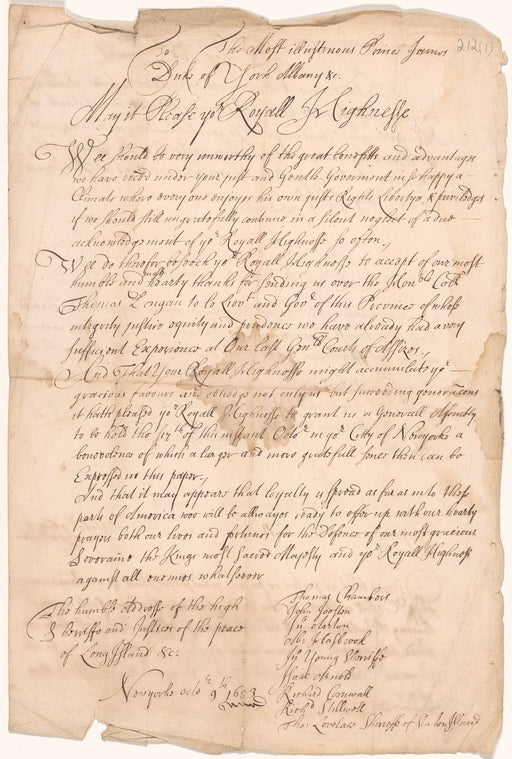 To The Most illustrious Prince James
212(1)
Duke of York Albany &c.
May it Please yor Royall Highnesse
Wee should be very unworthy of the great benefits and advantages
we have under your just and Gentle Goverment in so happy a
Climate where everyone enjoyes his own just Rights Libertys & priviledges
if we should still ungratefully continue in a silent neglect of a due
acknowledgement of yor Royall Highnesse so often,
Wee do therefor beseech yor Royall Highnesse to accept of our most
humble and most hearty thanks for sending us over the Honoble Collo
Thomas Dongan to be Lievt and Govr of this Province of whose
integrity justice equity and prudence we have already had a very
sufficient Experience at Our last Genll Court of Assizes,
And That Your Royall Highnesse might accumulate yor
gracious favours and oblidge not only us but succeeding generacons
it hath pleased yor Royall Highnesse to grant us a Generall Assembly
to be held the of this instant Octobr in yor City of Newyorke a
benevolence of which a larger and more gratefull sense then can be
Expressed in this paper,
And that it may appeare that loyalty is spread as far as in these
parts of America wee will be allwayes ready to offer up with our hearty
prayers both our lives and fortunes for the Defence of our most gracious
Soveraine the Kings most Sacred Majesty and yor Royall Highness
against all enemies whatsoever
The humble Addresse of the high
Sherriffe and Justices of the peace
of Long Island &c:
Newyorke Octobr 9th 1683
Thomas Chambers
John
Jno
Young Sherriffe
Isaac Arnold
Richard Cornwall
Richd Stillwell
Tho: Lovelace Sherriffe of Staten Island